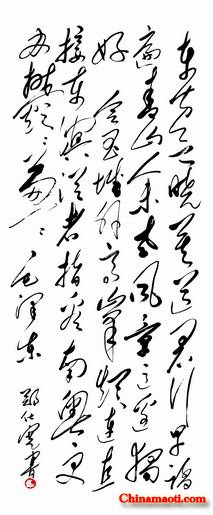 东方欲晓莫道君行早踏
遍青山人未老风景这边独
好会昌城外高峰颠连直
接东溟战士指看南粤更
加郁郁葱葱毛泽东
Chinamaoti.com